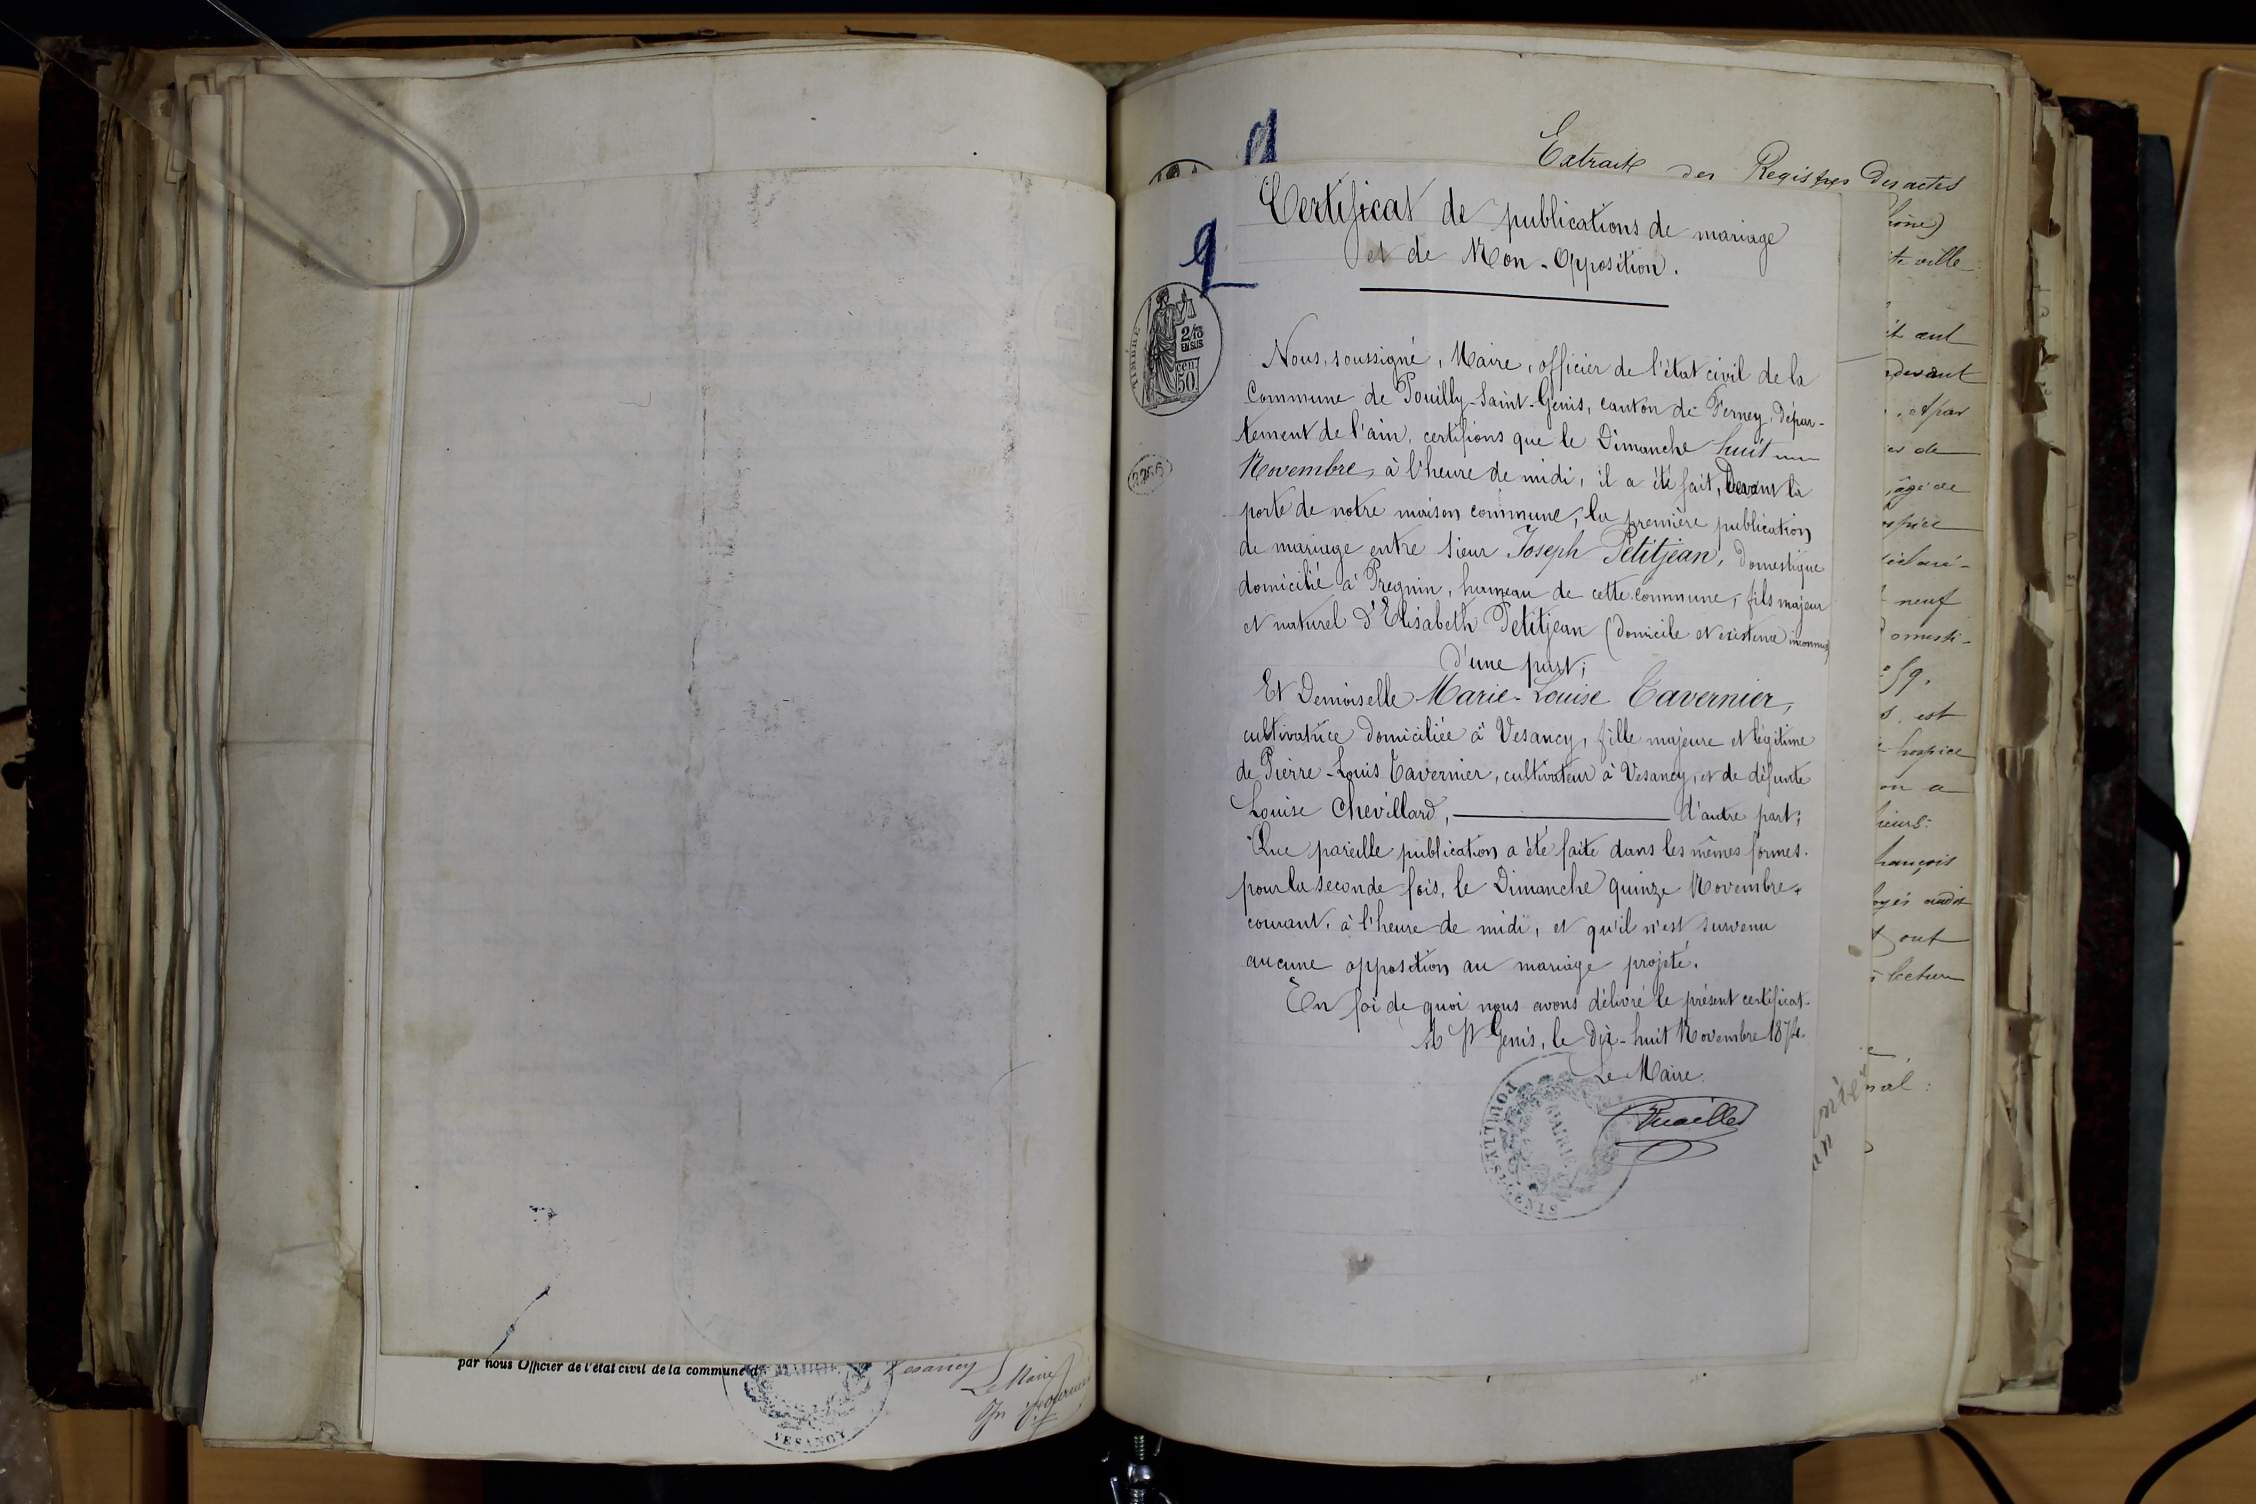 par nous Officier de l'état civil de la commune d
Vesancy
Le Maire
MAIRIE
VESANCY
Extrait des Registres des actes
Certificat de publications de mariage
et de Non-Opposition.
2/10
EN SUS
50 cen
TIMBRE
Nous, soussigné, Maire, officier de l'état civil de la
Commune de Pouilly-Saint-Genis, canton de Ferney, dépar-
tement de l'ain, certifions que le Dimanche huit
Novembre, à l'heure de midi, il a été fait, Devant la
porte de notre maison commune, la première publication
de mariage entre Sieur Joseph Petitjean, Domestique
domicilié à Pregnin, hameau de cette commune, fils majeur
et naturel d'Elisabeth Petitjean (Domicile et existence inconnus)
d'une part;
Et Demoiselle Marie-Louise Tavernier,
cultivatrice domiciliée à Vesancy, fille majeure et légitime
de Pierre-Louis Tavernier, cultivateur à Vesancy, et de défunte
Louise Chevillard, d'autre part;
Que pareille publication a été faite dans les mêmes formes.
pour la seconde fois, le Dimanche quinze Novembre
courant, à l'heure de midi, et qu'il n'est survenu
aucune opposition au mariage projeté.
En foi de quoi nous avons délivré le présent certificat.
A St Genis, le dix-huit Novembre 1874.
Le Maire
MAIRIE
POUILLY-ST-GENIS
ite ville
et par
âgé de
neuf
omesti-
59.
s. est
hospice
on a
sieurs
rançois
oyés audit
ont
lecture